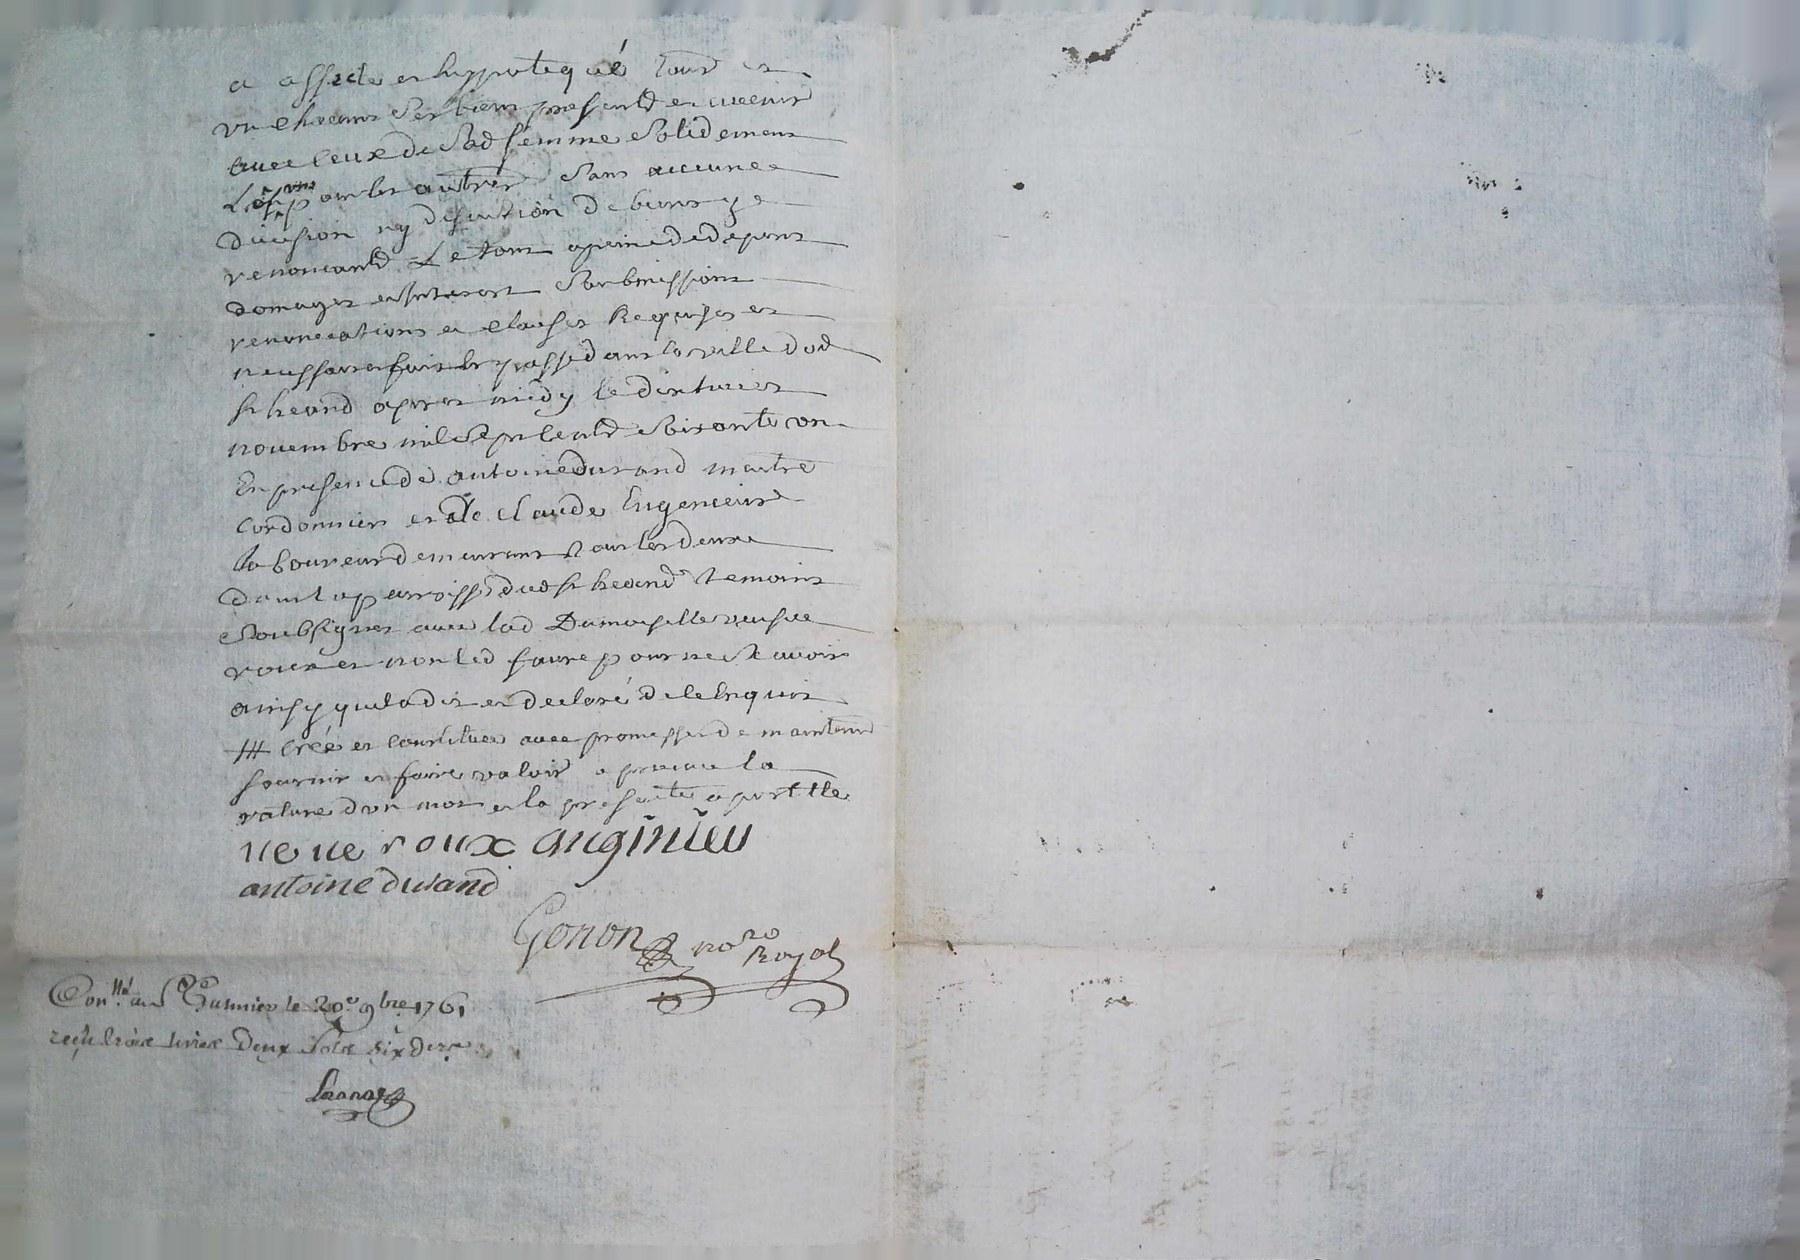 a affecté et hyppotequé tous et
un chacuns ses biens presents et avenir
avec ceux de sad femme solidement
l'un pour les autres sans aucune
division ny discution de
renonceants Le tout a peine de depens
domages et interest soubmissions
renonciations et clauses Requises et
necessaires fait et passé dans la ville dud
st heand apres midy le dix huit
novembre mil sept cents soixante un
En presence de antoine durand maitre
Cordonnier et de Claude Engenieux
laboureur demeurant tous les deux
dans la parroisse dud st heand temoins
soubsignes avec lad Damoiselle veufve
roux et non led faure pour ne scavoir
ainsy quil a dit et declaré de ce Enquis
/// créé et constituée avec promesse de maintenir
fournir et faire valoir aprouvé la
rature d'un mot et la presente apostille
veue roux anginieu
antoine durand
Gonon nore Royal
Conllé au St heand le 20e 9bre 1761
reçu trois livres Deux sols six ders